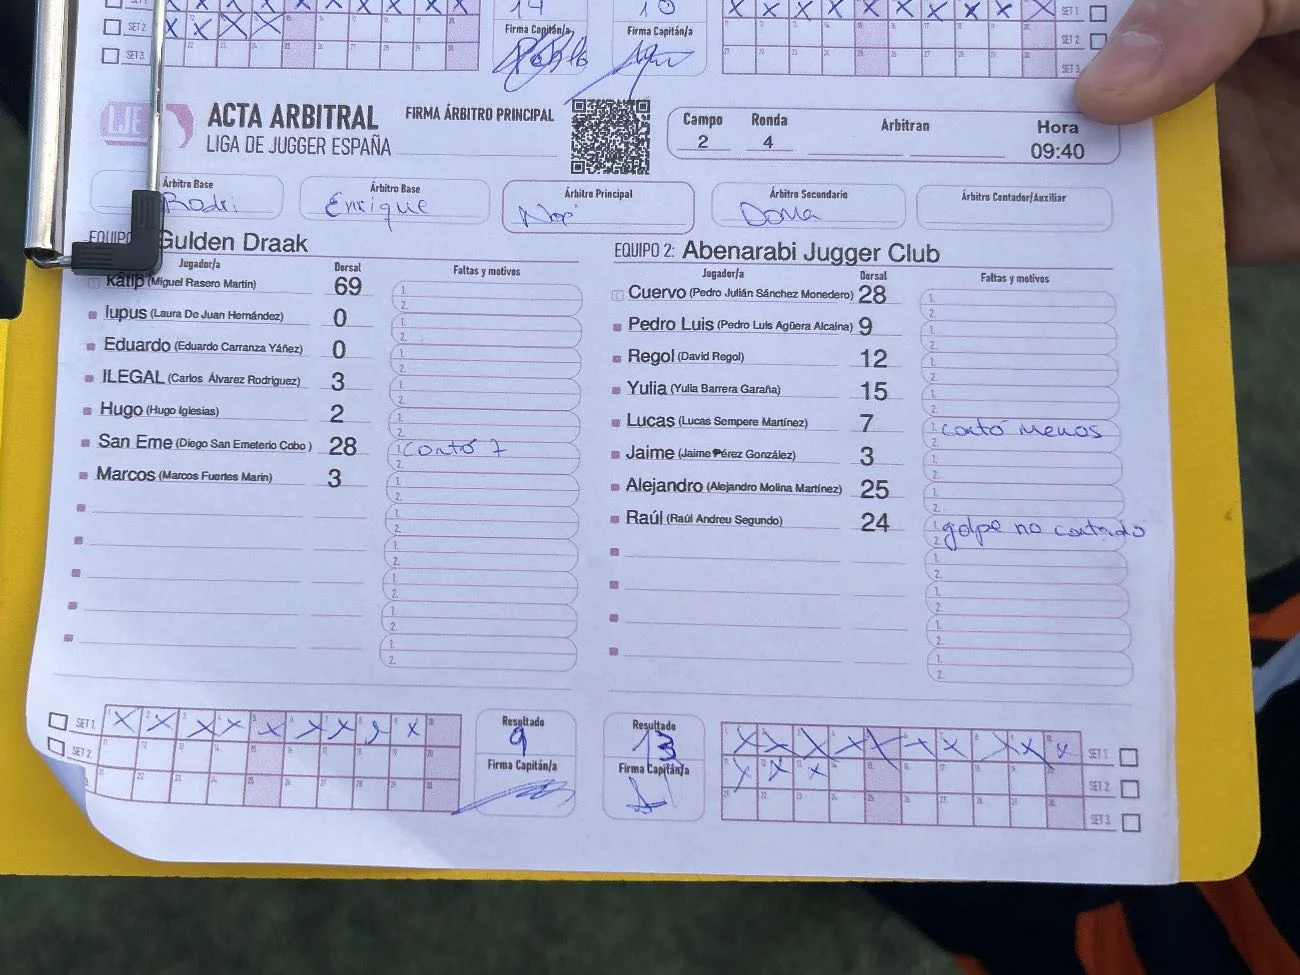 SET 2
SET 3
14
Firma Capitán/a
10
Firma Capitán/a
SET 1
SET 2
SET 3
LJE
ACTA ARBITRAL
LIGA DE JUGGER ESPAÑA
FIRMA ÁRBITRO PRINCIPAL
Campo Ronda Arbitran Hora
2 4 09:40
Árbitro Base
Rodri
Árbitro Base
Enrique
Árbitro Principal
Noe
Árbitro Secundario
Árbitro Contador/Auxiliar
EQUIPO Gulden Draak
Jugador/a Dorsal Faltas y motivos
katip (Miguel Rasero Martin) 69 1. 2.
lupus (Laura De Juan Hernández) 0 1. 2.
Eduardo (Eduardo Carranza Yáñez) 0 1. 2.
ILEGAL (Carlos Álvarez Rodriguez) 3 1. 2.
Hugo (Hugo Iglesias) 2 1. 2.
San Eme (Diego San Emeterio Cobo ) 28 1. contó 7 2.
Marcos (Marcos Fuertes Marin) 3 1. 2.
1. 2.
1. 2.
1. 2.
1. 2.
1. 2.
EQUIPO 2: Abenarabi Jugger Club
Jugador/a Dorsal Faltas y motivos
Cuervo (Pedro Julián Sánchez Monedero) 28 1. 2.
Pedro Luis (Pedro Luis Agüera Alcaina) 9 1. 2.
Regol (David Regol) 12 1. 2.
Yulia (Yulia Barrera Garaña) 15 1. 2.
Lucas (Lucas Sempere Martínez) 7 1. contó menos 2.
Jaime (Jaime Pérez González) 3 1. 2.
Alejandro (Alejandro Molina Martínez) 25 1. 2.
Raúl (Raúl Andreu Segundo) 24 1. golpe no contado 2.
1. 2.
1. 2.
1. 2.
1. 2.
SET 1.
SET 2.
Resultado
9
Firma Capitán/a
Resultado
13
Firma Capitán/a
SET 1.
SET 2
SET 3